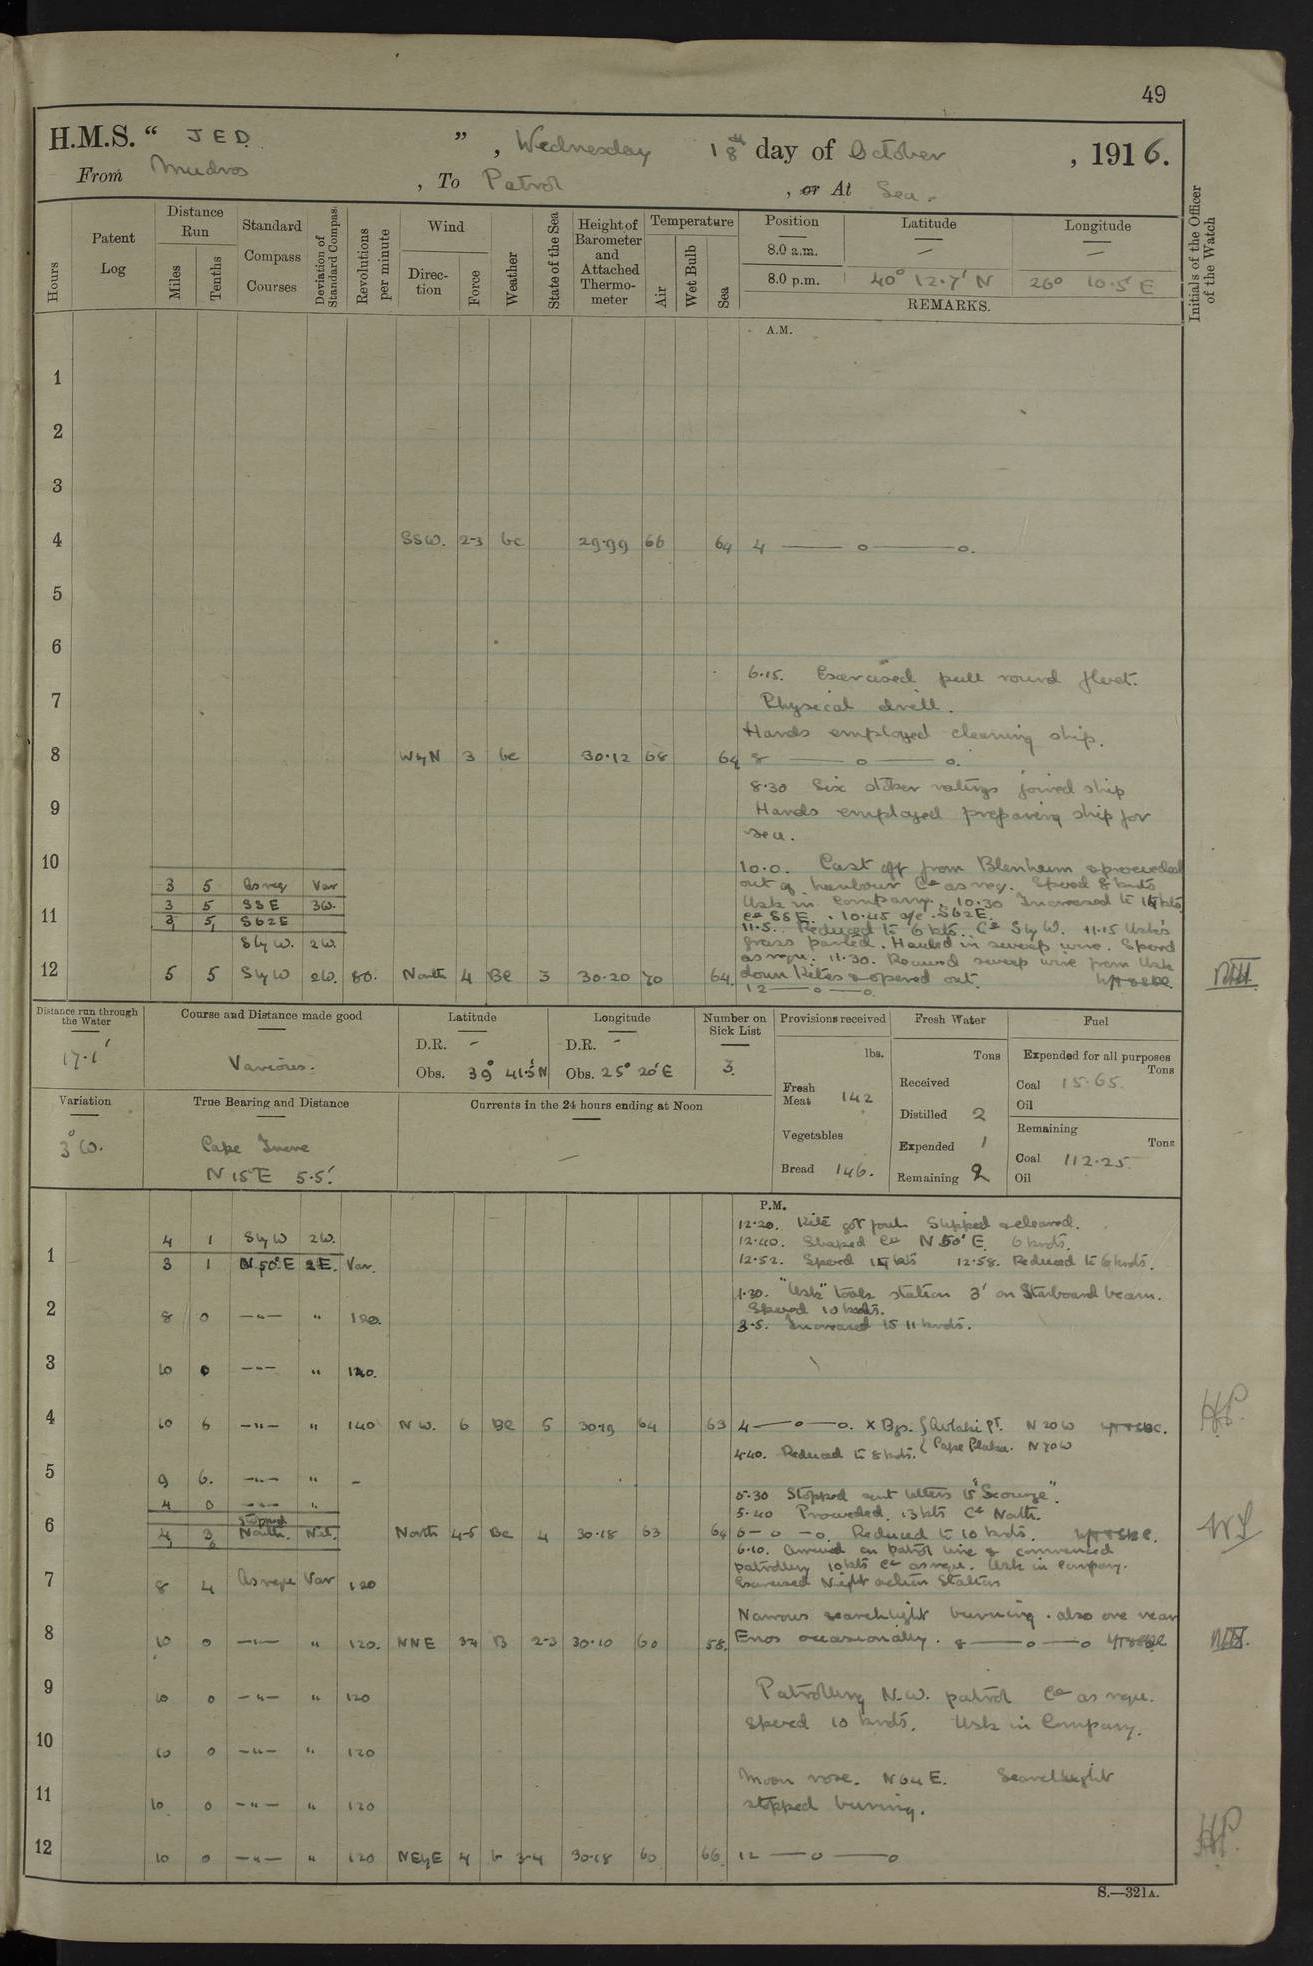 49
H.M.S. “ JED ” , Wednesday 18th day of October , 1916.
From Mudros , To Patrol , or At Sea.
Hours
Patent Log
Distance Run
Miles
Tenths
Standard Compass Courses
Deviation of Standard Compas.
Revolutions per minute
Wind
Direction
Force
Weather
State of the Sea
Height of Barometer and Attached Thermometer
Temperature
Air
Wet Bulb
Sea
Position Latitude Longitude
8.0 a.m. — —
8.0 p.m. 40° 12.7' N 26° 10.5' E
REMARKS.
Initials of the Officer of the Watch
A.M.
1
2
3
4 SSW. 2-3 bc 29.99 66 64 4 — o — o.
5
6
6.15. Exercised pull round fleet.
7 Physical drill.
Hands employed cleaning ship.
8 WyN 3 bc 30.12 68 64 8 — o — o.
8.30 Six stoker ratings joined ship
9 Hands employed preparing ship for
sea.
10 10.0. Cast off from Blenheim & proceeded
3 5 As req Var out of harbour Co as req. Speed 8 knots
3 5 SSE 3W. Usk in Company. 10.30 Increased to 14 kts
11 3 5 S62E Co SSE. 10.45 a/c S62E.
11.5. Reduced to 6 kts. Co SlyW. 11.15 Usk's
SlyW. 2W. grass parted. Hauled in sweep wire. Speed
as requ. 11.30. Received sweep wire from Usk
12 5 5 SlyW 2W. 80. North 4 BC 3 30.20 70 64. down Kites & opened out.
12 — o — o
Distance run through the Water
17.1'
Course and Distance made good
Various.
Latitude
D.R. -
Obs. 39° 41.5' N
Longitude
D.R. -
Obs. 25° 20' E
Number on Sick List
3.
Provisions received
lbs.
Fresh Meat 142
Vegetables
Bread 146.
Fresh Water
Tons
Received
Distilled 2
Expended 1
Remaining 2
Fuel
Expended for all purposes
Tons
Coal 15.65
Oil
Remaining
Tons
Coal 112.25
Oil
Variation
3° W.
True Bearing and Distance
Cape Irene
N 15° E 5.5'
Currents in the 24 hours ending at Noon
—
P.M.
12.20. Kite got foul. Stopped & cleared.
4 1 SlyW 2W. 12.40. Shaped Co N 50° E. 6 knots.
1 3 1 N 50° E 2E. Var. 12.52. Speed 14 kts 12.58. Reduced to 6 knots.
1.30. "Usk" took station 3' on Starboard beam.
2 8 0 —"— " 120. Speed 10 knots.
3.5. Increased to 11 knots.
3 10 0 —"— " 120.
4 10 6 —"— " 140 NW. 6 BC 5 30.19 64 63 4 — o — o. X Bgs. { Avlaki Pt. N 20 W
4.40. Reduced to 8 knots. { Cape Plaka. N 70 W
5 9 6. —"— " -
4 0 —"— " 5.30 Stopped sent letters to "Scourge".
Stopped 5.40 Proceeded. 13 kts Co North.
6 4 3 North. Nil. North 4-5 BC 4 30.18 63 64 6 — o — o. Reduced to 10 knots.
6.10. Arrived on patrol line & commenced
patrolling 10 kts Co as requ. Usk in Company.
7 8 4 As requ Var 120 Exercised Night action Stations
Narrows searchlight burning. also one near
8 10 0 —"— " 120. NNE 3-4 B 2-3 30.10 60 58. Enos occasionally. 8 — o — o
9 10 0 —"— " 120 Patrolling N.W. patrol Co as requ.
Speed 10 knots. Usk in Company.
10 10 0 —"— " 120
Moon rose. N64E. Searchlight
11 10 0 —"— " 120 stopped burning.
12 10 0 —"— " 120 NEyE 4 b 3-4 30.18 60 66 12 — o — o
HP.
S.—321A.